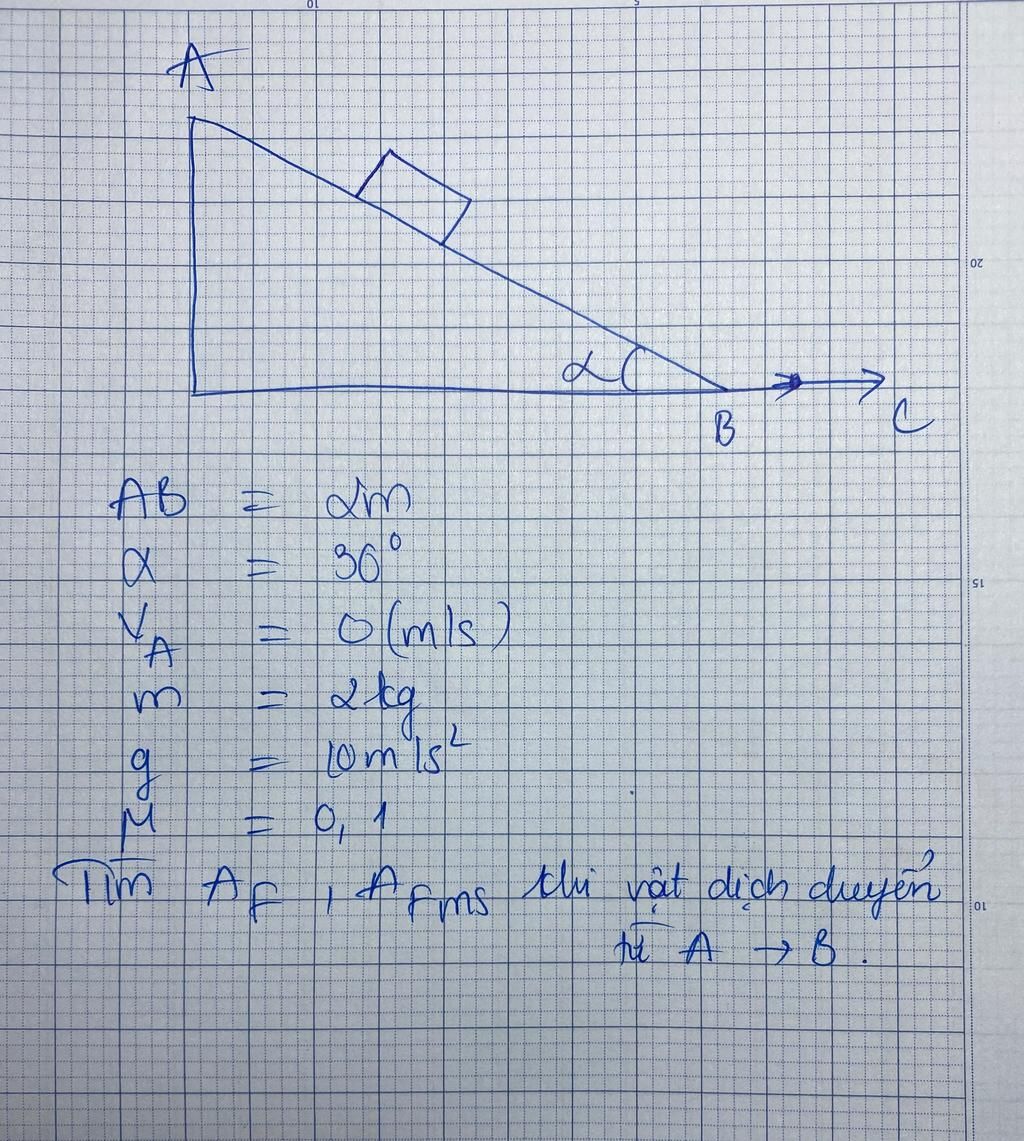 A
α
B
C
AB = 2m
α = 30°
V_A = 0 (m/s)
m = 2kg
g = 10m/s²
μ = 0,1
Tìm A_F, A_Fms khi vật dịch chuyển
từ A → B.
10
5
20
15
10